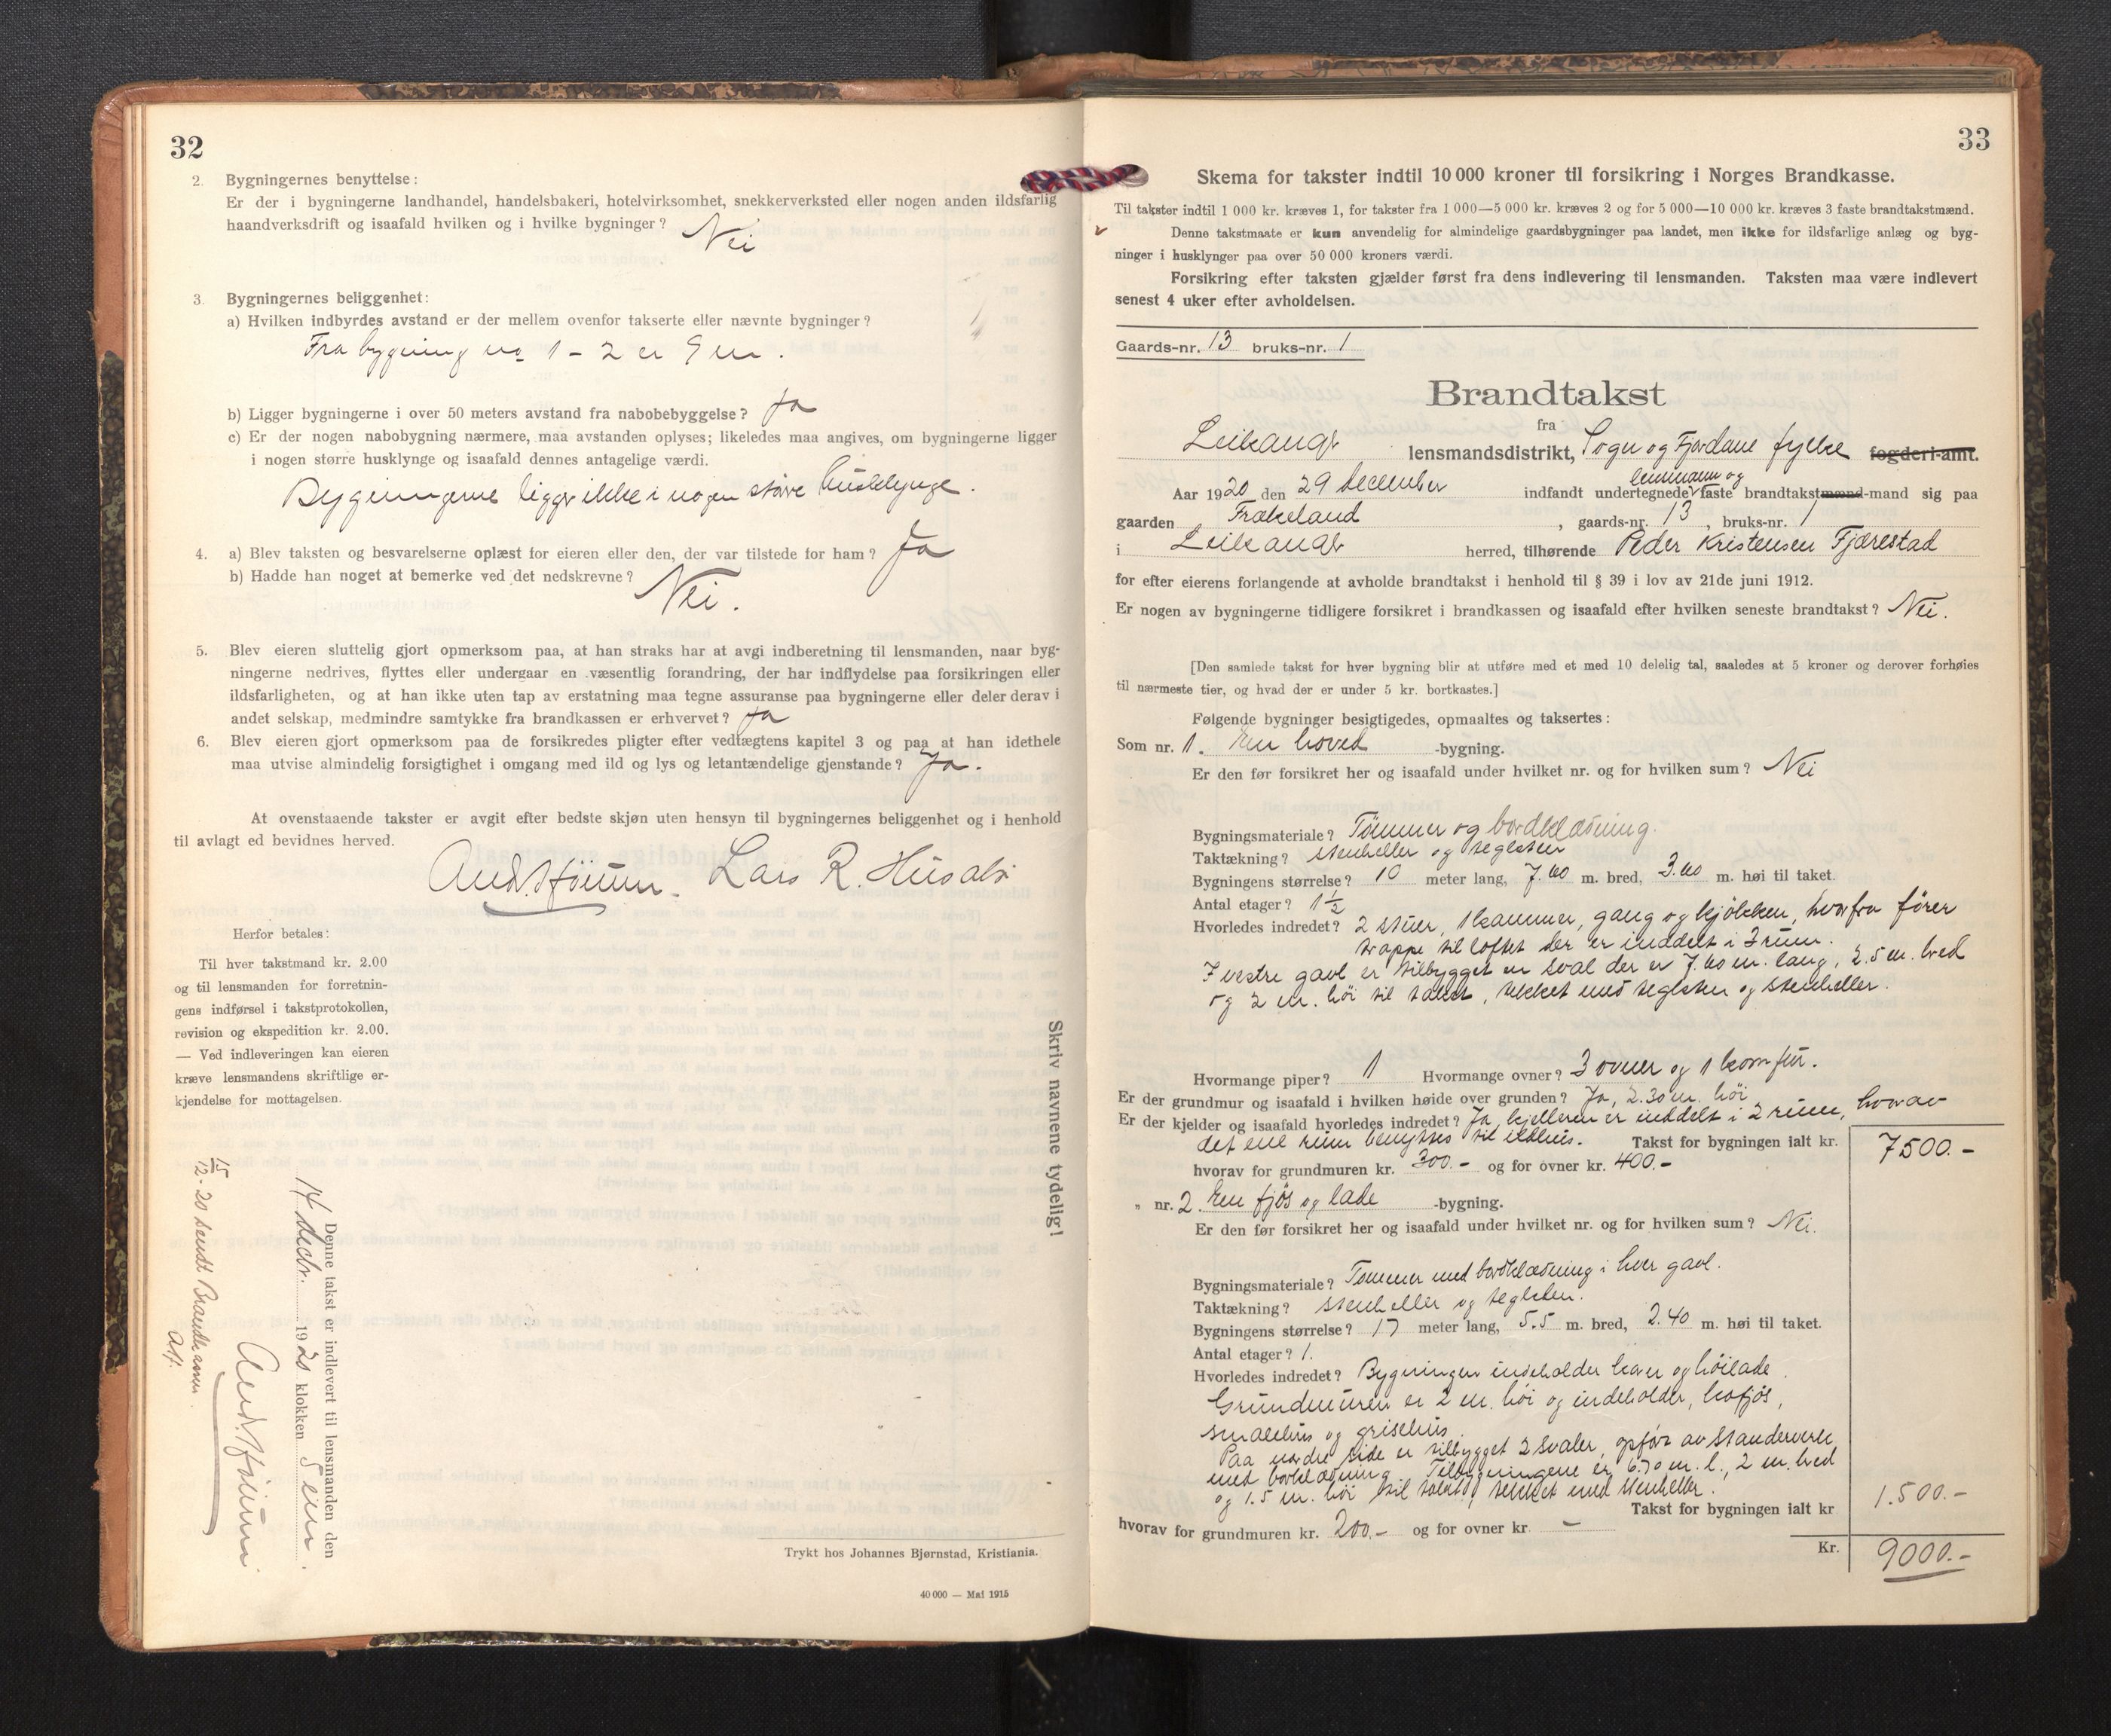 32
2. Bygningernes benyttelse:
Er der i bygningerne landhandel, handelsbakeri, hotelvirksomhet, snekkerverksted eller nogen anden ildsfarlig
haandverksdrift og isaafald hvilken og i hvilke bygninger? Nei
3. Bygningernes beliggenhet:
a) Hvilken indbyrdes avstand er der mellem ovenfor takserte eller nævnte bygninger?
Fra bygning no 1 - 2 er 9 m.
b) Ligger bygningerne i over 50 meters avstand fra nabobebyggelse? Ja
c) Er der nogen nabobygning nærmere, maa avstanden oplyses; likeledes maa angives, om bygningerne ligger
i nogen større husklynge og isaafald dennes antagelige værdi.
Bygningerne ligger ikke i nogen større husklynge.
4. a) Blev taksten og besvarelserne oplæst for eieren eller den, der var tilstede for ham? Ja
b) Hadde han noget at bemerke ved det nedskrevne? Nei.
5. Blev eieren sluttelig gjort opmerksom paa, at han straks har at avgi indberetning til lensmanden, naar byg-
ningerne nedrives, flyttes eller undergaar en væsentlig forandring, der har indflydelse paa forsikringen eller
ildsfarligheten, og at han ikke uten tap av erstatning maa tegne assuranse paa bygningerne eller deler derav i
andet selskap, medmindre samtykke fra brandkassen er erhvervet? Ja
6. Blev eieren gjort opmerksom paa de forsikredes pligter efter vedtægtens kapitel 3 og paa at han idethele
maa utvise almindelig forsigtighet i omgang med ild og lys og letantændelige gjenstande? Ja.
At ovenstaaende takster er avgit efter bedste skjøn uten hensyn til bygningernes beliggenhet og i henhold
til avlagt ed bevidnes herved.
Lars R. Husabø
Herfor betales:
Til hver takstmand kr. 2.00
og til lensmanden for forretnin-
gens indførsel i takstprotokollen,
revision og ekspedition kr. 2.00.
— Ved indleveringen kan eieren
kræve lensmandens skriftlige er-
kjendelse for mottagelsen.
Skriv navnene tydelig!
Denne takst er indlevert til lensmanden den
14 decbr. 1920 klokken 5 em.
15/12-20 sendt Brandkassen
Trykt hos Johannes Bjørnstad, Kristiania.
40 000 — Mai 1915
33
Skema for takster indtil 10 000 kroner til forsikring i Norges Brandkasse.
Til takster indtil 1 000 kr. kræves 1, for takster fra 1 000—5 000 kr. kræves 2 og for 5 000—10 000 kr. kræves 3 faste brandtakstmænd.
Denne takstmaate er kun anvendelig for almindelige gaardsbygninger paa landet, men ikke for ildsfarlige anlæg og byg-
ninger i husklynger paa over 50 000 kroners værdi.
Forsikring efter taksten gjælder først fra dens indlevering til lensmanden. Taksten maa være indlevert
senest 4 uker efter avholdelsen.
Gaards-nr. 13 bruks-nr. 1
Brandtakst
fra
Leikanger lensmandsdistrikt, Sogn og Fjordane fylke fogderi-amt.
lensmann og
Aar 1920 den 29 december indfandt undertegnede faste brandtakstmænd-mand sig paa
gaarden Frækeland, gaards-nr. 13, bruks-nr. 1
i Leikanger herred, tilhørende Peder Kristensen Fjærestad
for efter eierens forlangende at avholde brandtakst i henhold til § 39 i lov av 21de juni 1912.
Er nogen av bygningerne tidligere forsikret i brandkassen og isaafald efter hvilken seneste brandtakst? Nei.
[Den samlede takst for hver bygning blir at utføre med et med 10 delelig tal, saaledes at 5 kroner og derover forhøies
til nærmeste tier, og hvad der er under 5 kr. bortkastes.]
Følgende bygninger besigtigedes, opmaaltes og taksertes:
Som nr. 1. En hoved-bygning.
Er den før forsikret her og isaafald under hvilket nr. og for hvilken sum? Nei
Bygningsmateriale? Tømmer og bordklædning.
Taktækning? stenheller og teglsten
Bygningens størrelse? 10 meter lang, 7.60 m. bred, 3.60 m. høi til taket.
Antal etager? 1½
Hvorledes indredet? 2 stuer, 1 kammer, gang og kjøkken, hvorfra fører
trappe til loftet der er inddelt i 3 rum.
I vestre gavl er tilbygget en sval der er 7.60 m. lang, 2.5 m. bred
og 2 m. høi til taket, tekket med teglsten og stenheller.
Hvormange piper? 1 Hvormange ovner? 3 ovner og 1 komfur.
Er der grundmur og isaafald i hvilken høide over grunden? Ja, 2.30 m. høi
Er der kjelder og isaafald hvorledes indredet? Ja, kjelleren er inddelt i 2 rum, hvorav
det ene rum benyttes til ildhus. Takst for bygningen ialt kr. 7500.-
hvorav for grundmuren kr. 300.- og for ovner kr. 400.-
„ nr. 2. En fjøs og lade-bygning.
Er den før forsikret her og isaafald under hvilket nr. og for hvilken sum? Nei.
Bygningsmateriale? Tømmer med bordklædning i hver gavl.
Taktækning? stenheller og teglsten.
Bygningens størrelse? 17 meter lang, 5.5 m. bred, 2.40 m. høi til taket.
Antal etager? 1.
Hvorledes indredet? Bygningen indeholder laaver og høilade.
Grundmuren er 2 m. høi og indeholder, kofjøs,
smalehus og grisehus.
Paa nordre side er tilbygget 2 svaler, opført av standerverk
med bordklædning. Tilbygningene er 6.70 m. l., 2 m. bred
og 1.5 m. høi til taket, tekket med stenheller.
Takst for bygningen ialt kr 1.500.-
hvorav for grundmuren kr. 200.- og for ovner kr. -
Kr. 9000.-